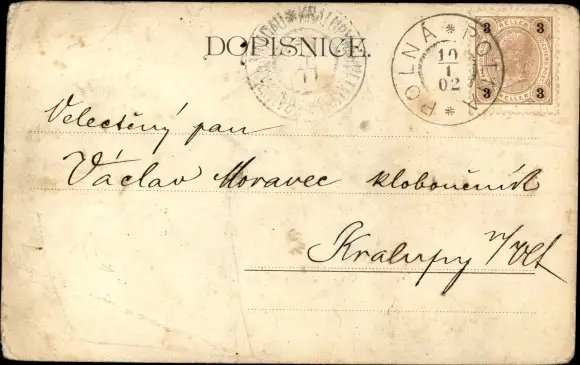 DOPISNICE.
POLNÁ * POLNA *
10
1
02
3 HELLER 3
3 HELLER 3
Velectěný pan
Václav Moravec kloboučník
Kralupy n/Vlt